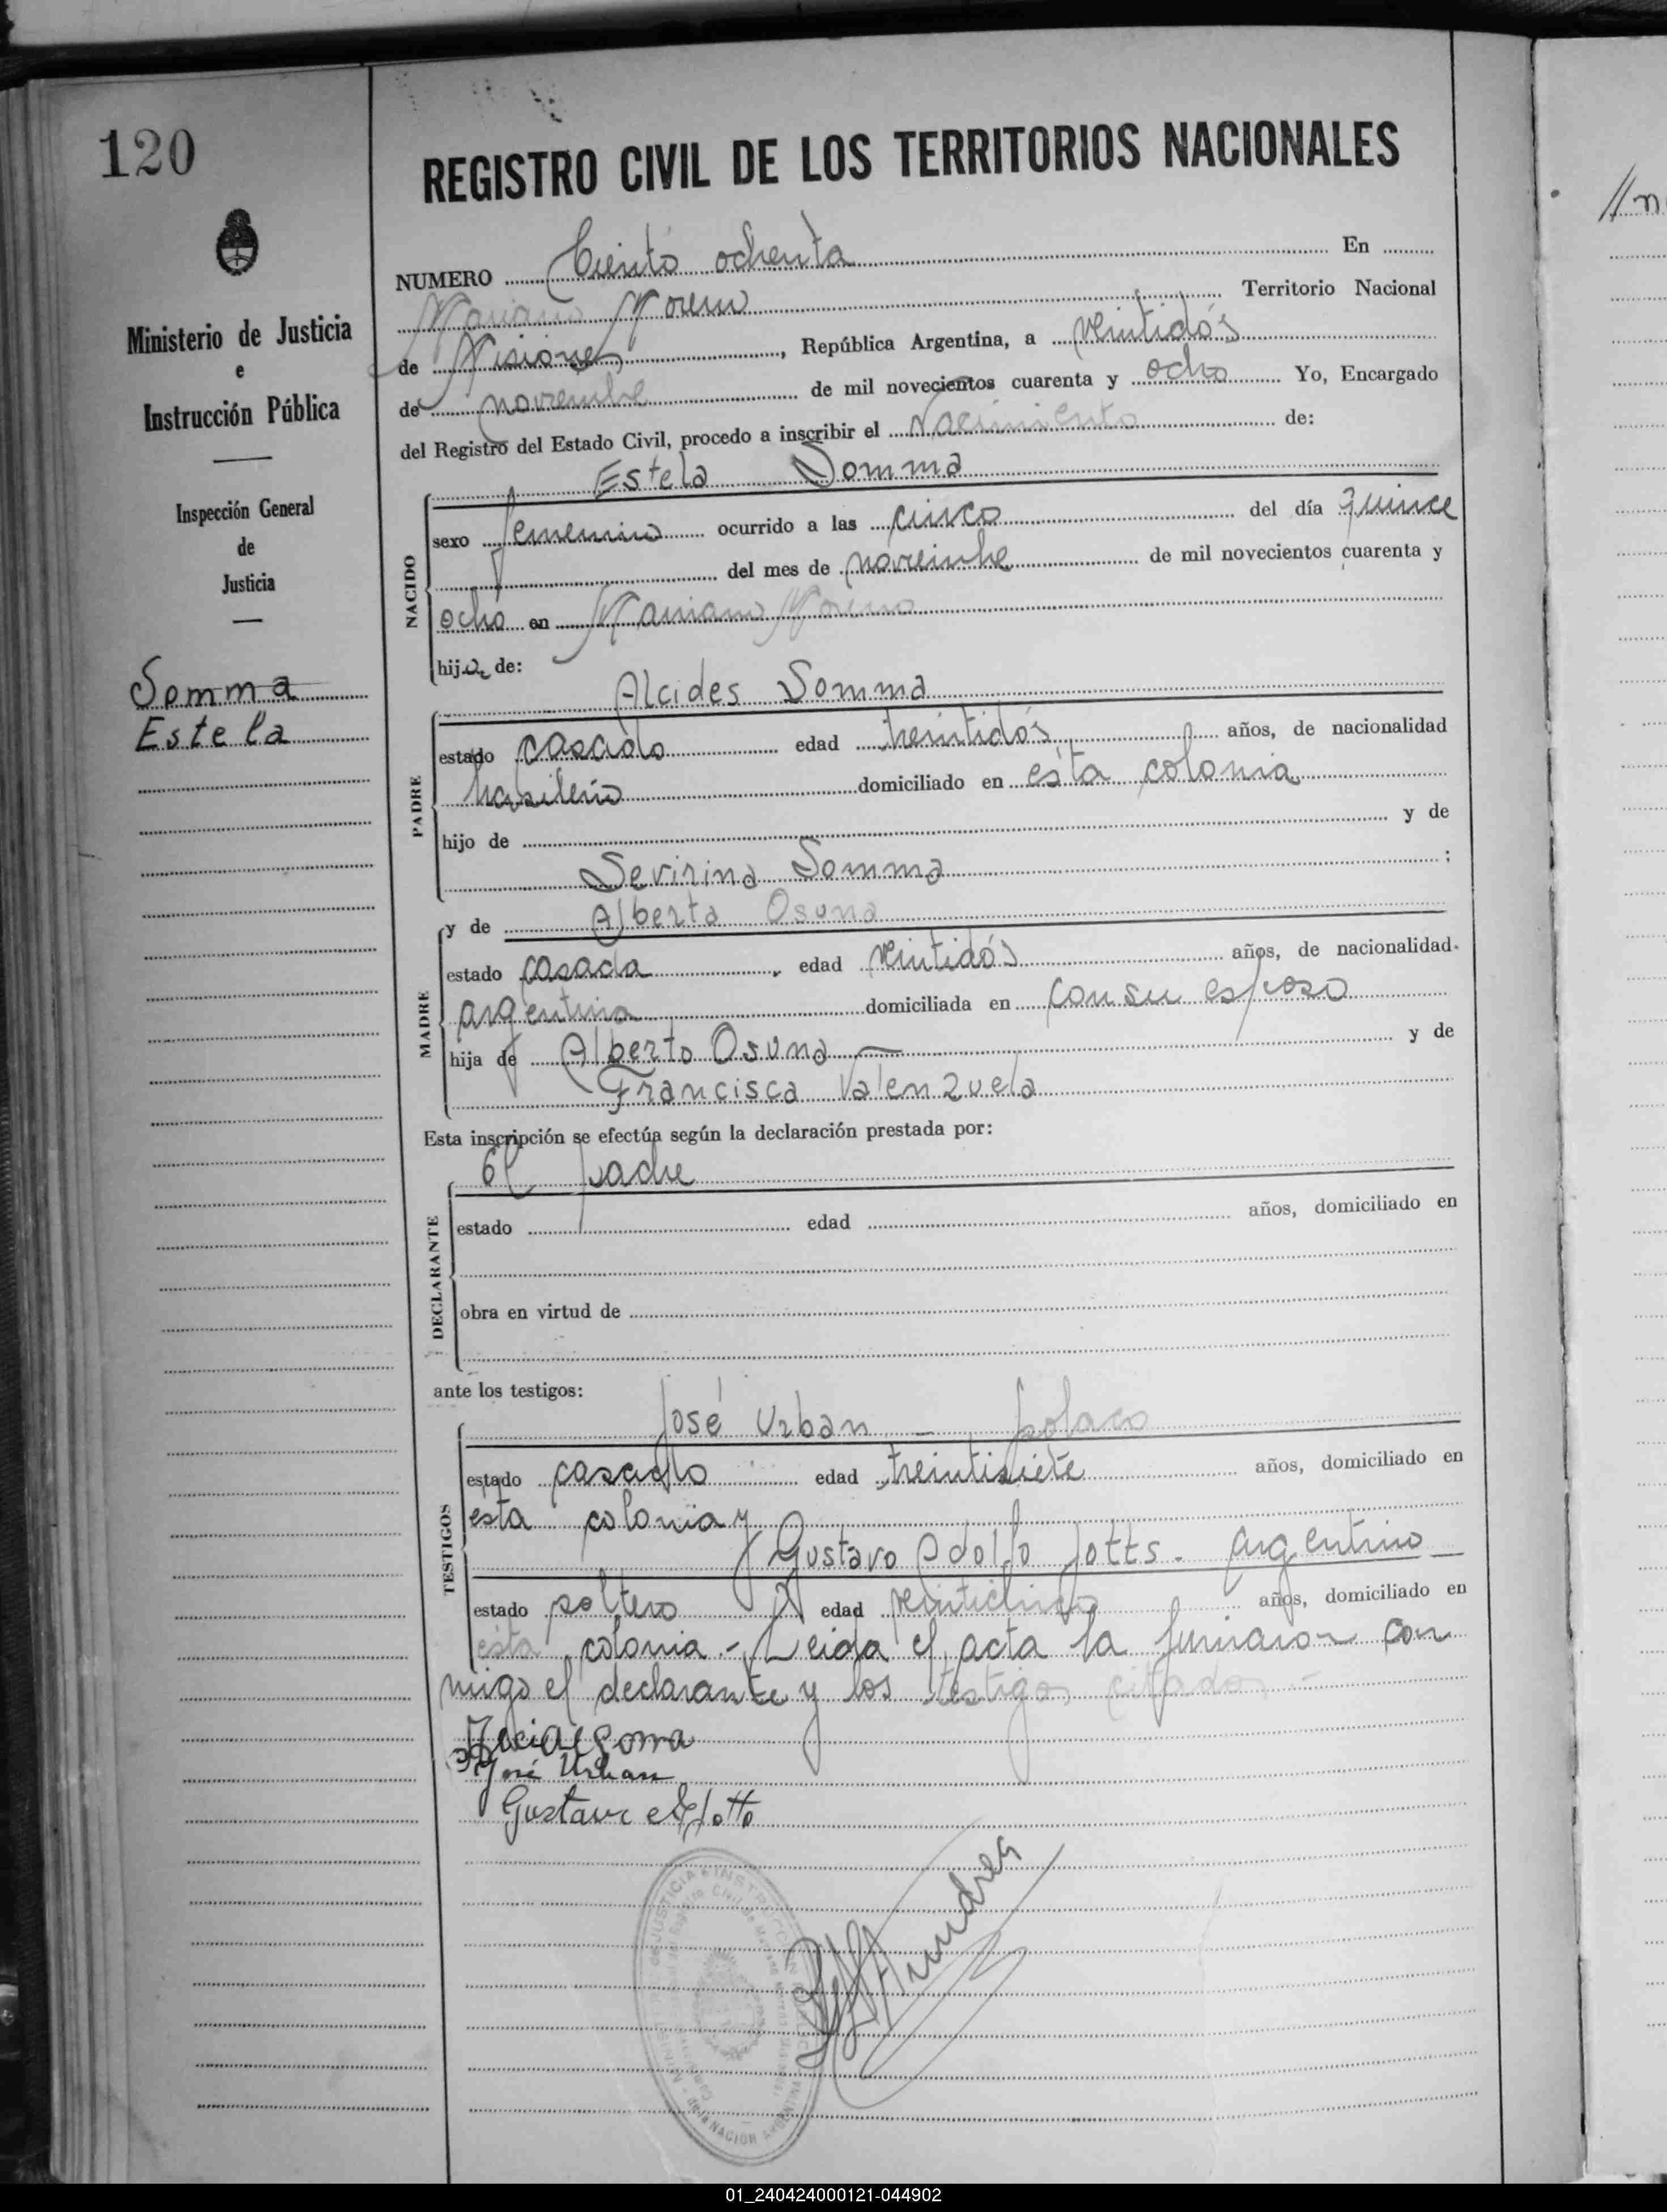 120
Ministerio de Justicia
e
Instrucción Pública
Inspección General
de
Justicia
Somma
Estela
REGISTRO CIVIL DE LOS TERRITORIOS NACIONALES
NUMERO Ciento ochenta En
Mariano Moreno Territorio Nacional
de Misiones, República Argentina, a veintidós
de noviembre de mil novecientos cuarenta y ocho Yo, Encargado
del Registro del Estado Civil, procedo a inscribir el Nacimiento de:
Estela Somma
NACIDO
sexo femenino ocurrido a las cinco del día quince
del mes de noviembre de mil novecientos cuarenta y
ocho en Mariano Moreno
hija de:
Alcides Somma
PADRE
estado casado edad treintidós años, de nacionalidad
brasileño domiciliado en esta colonia
hijo de y de
Sevirina Somma ;
y de Alberta Osuna
MADRE
estado casada, edad veintidós años, de nacionalidad
argentina domiciliada en con su esposo
hija de Alberto Osuna y de
Francisca Valenzuela
Esta inscripción se efectúa según la declaración prestada por:
El padre
DECLARANTE
estado edad años, domiciliado en
obra en virtud de
ante los testigos:
José Urban - polaco
TESTIGOS
estado casado edad treintisiete años, domiciliado en
esta colonia y
Gustavo Adolfo Jotts. argentino
estado soltero edad veinticinco años, domiciliado en
esta colonia.- Leida el acta la firmaron con
migo el declarante y los testigos citados -
José Urban
01_240424000121-044902